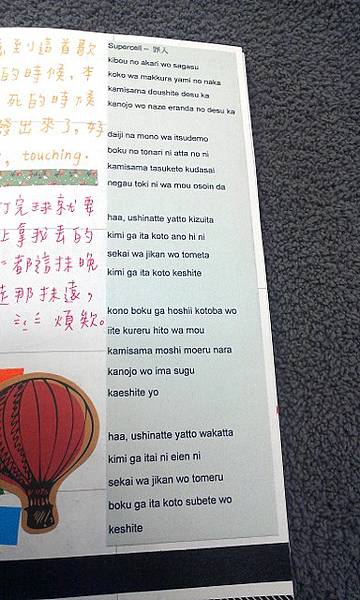 到這首歌
的時候,本
死的時候
發出來了,好
, touching.
完球就要
上拿我丟的
都這抹晚
那抹遠,
煩欸。
Supercell – 罪人
kibou no akari wo sagasu
koko wa makkura yami no naka
kamisama doushite desu ka
kanojo wo naze eranda no desu ka
daiji na mono wa itsudemo
boku no tonari ni atta no ni
kamisama tasukete kudasai
negau toki ni wa mou osoin da
haa, ushinatte yatto kizuita
kimi ga ita koto ano hi ni
sekai wa jikan wo tometa
kimi ga ita koto keshite
kono boku ga hoshii kotoba wo
iite kureru hito wa mou
kamisama moshi moeru nara
kanojo wo ima sugu
kaeshite yo
haa, ushinatte yatto wakatta
kimi ga itai ni eien ni
sekai wa jikan wo tomeru
boku ga ita koto subete wo
keshite